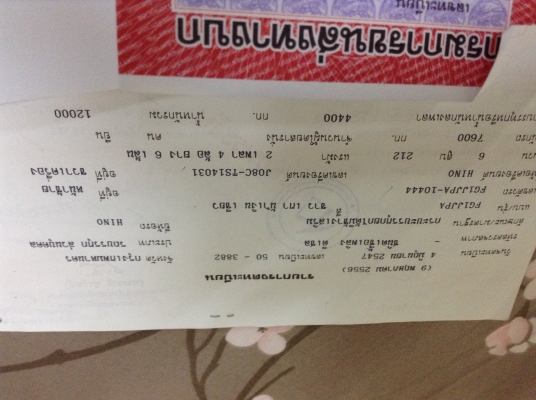 รายการจดทะเบียน
(9 พฤษภาคม 2556)
วันจดทะเบียน 4 มิถุนายน 2547 เลขทะเบียน 50 - 3882 จังหวัด กรุงเทพมหานคร
ชนิดเชื้อเพลิง ดีเซล ประเภท รถบรรทุก ส่วนบุคคล
ลักษณะ/มาตรฐาน กระบะบรรทุก ยี่ห้อรถ HINO
แบบ/รุ่น FG1JJPA สี ขาว เทา น้ำเงิน เขียว
เลขตัวรถ FG1JJPA-10444 อยู่ที่ หน้าซ้าย
HINO เลขเครื่องยนต์ J08C-TS14031 อยู่ที่ ขวาเครื่อง
6 สูบ 212 แรงม้า 2 เพลา 4 ล้อ ยาง 6 เส้น
7600 กก. จำนวนผู้โดยสาร นั่ง คน ยืน
4400 กก. น้ำหนักรวม 12000
กรมการขนส่งทางบก